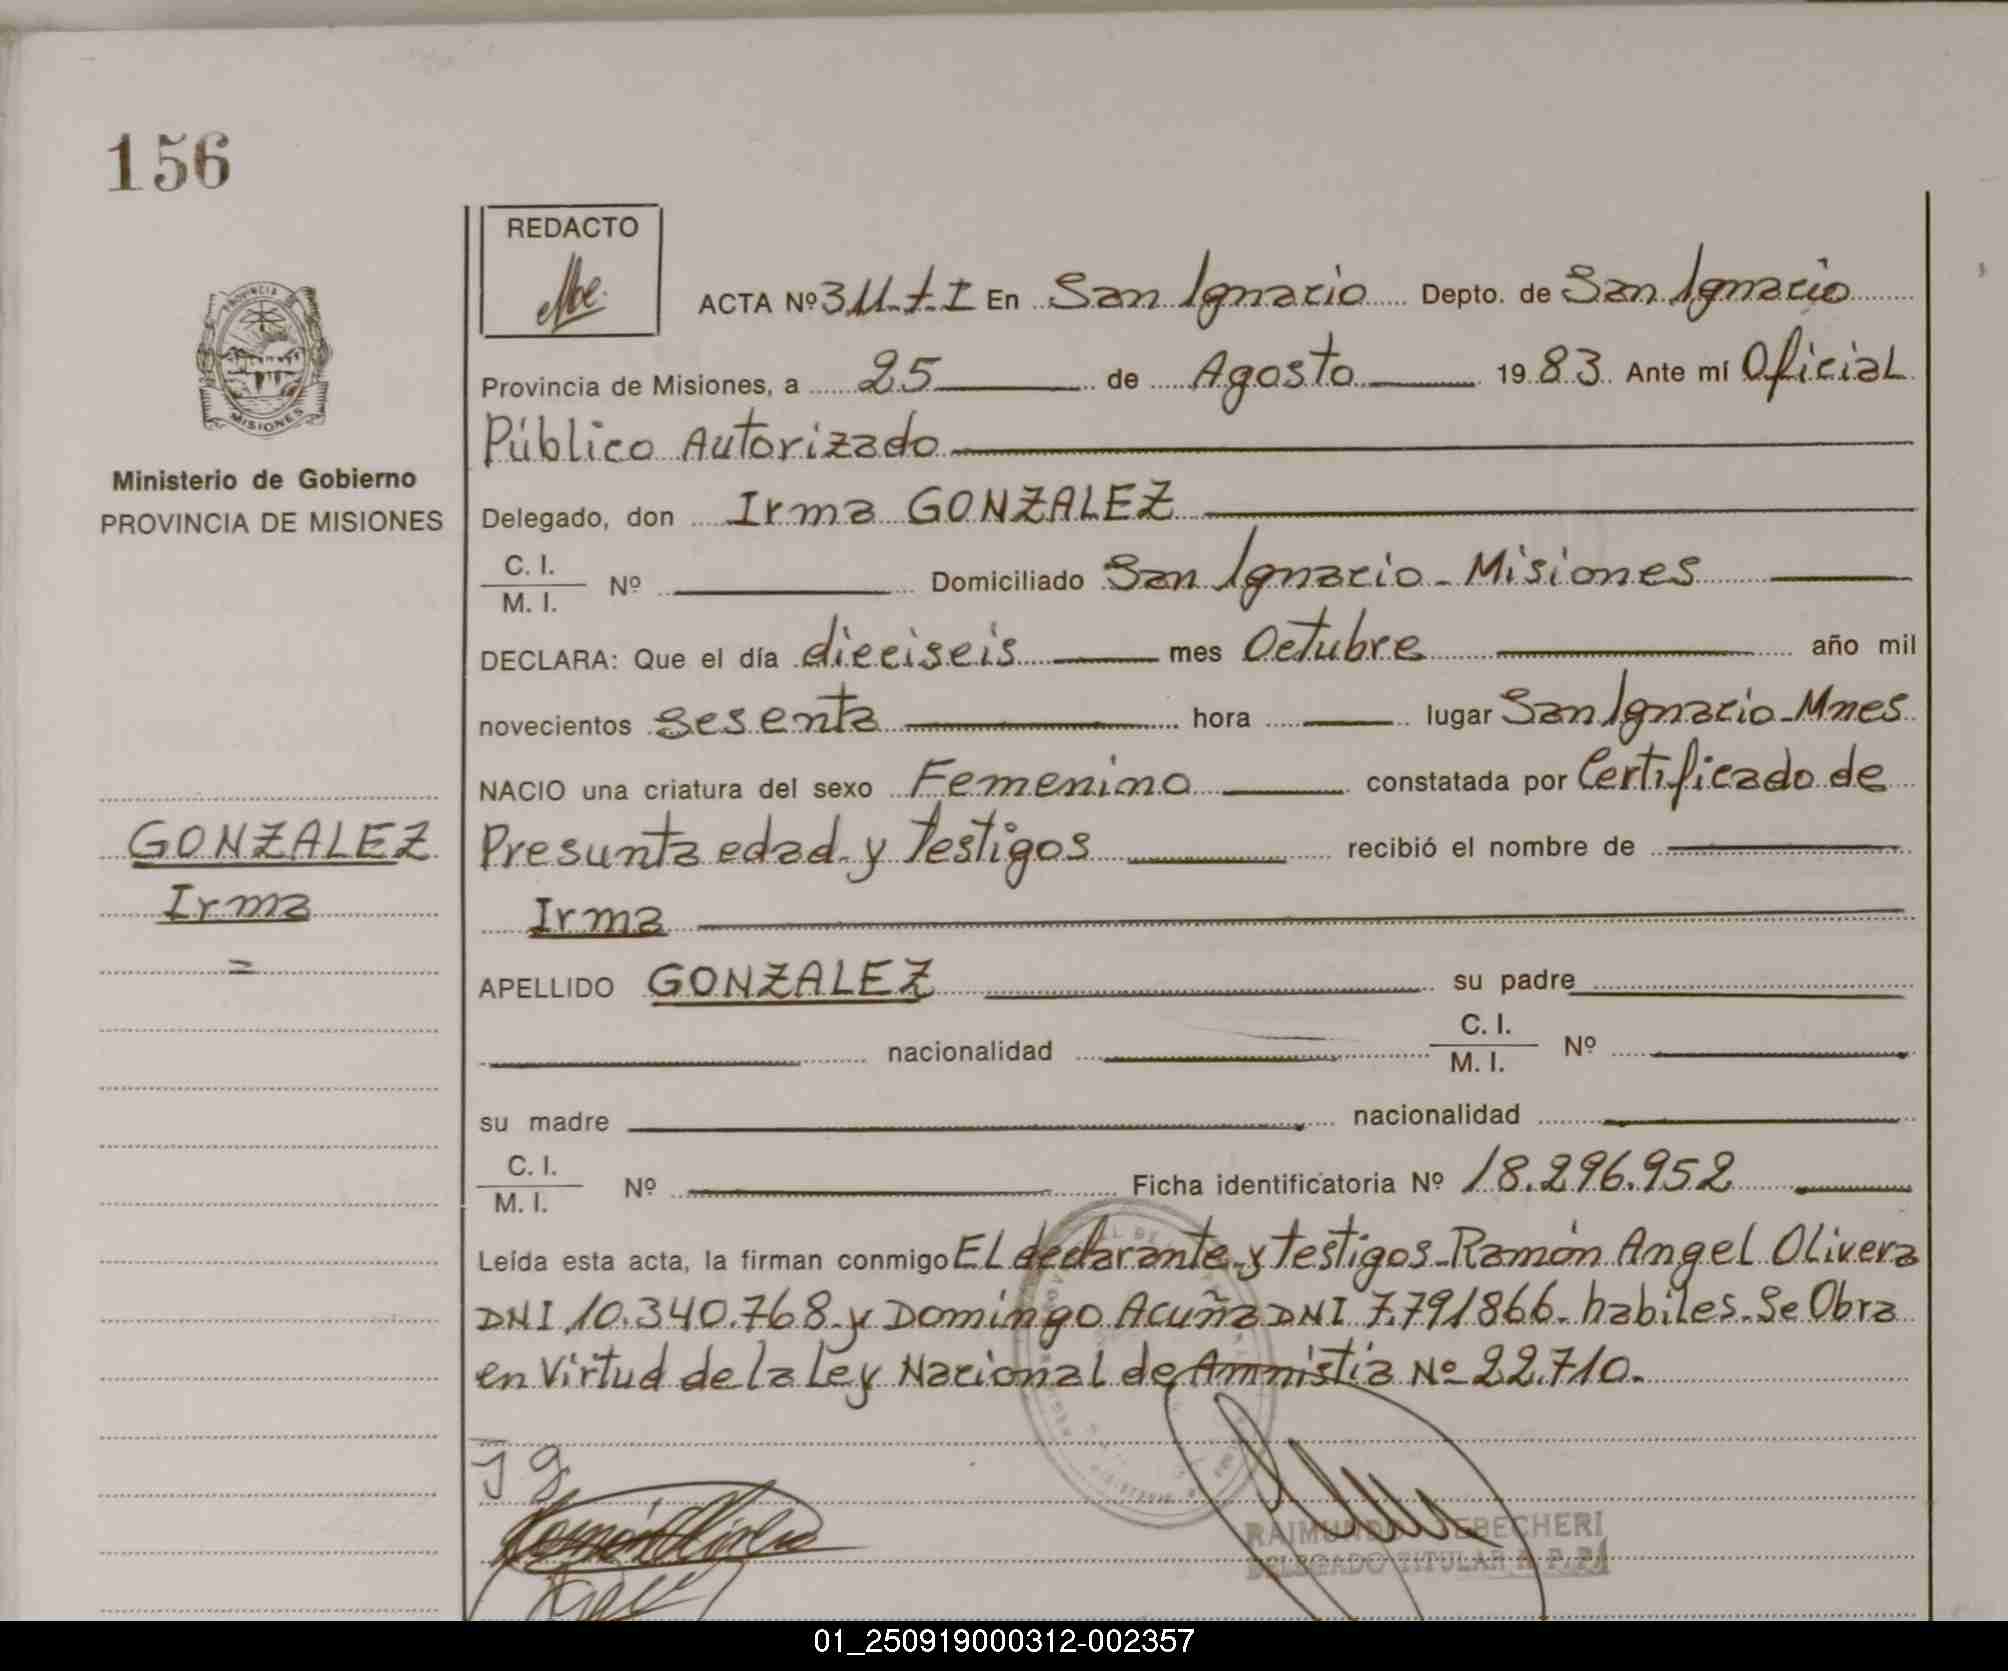 156
REDACTO
ACTA Nº 311-t-I En San Ignacio Depto. de San Ignacio
Provincia de Misiones, a 25 de Agosto 1983 Ante mí Oficial
Público Autorizado
Ministerio de Gobierno
PROVINCIA DE MISIONES
Delegado, don Irma GONZALEZ
C. I.
M. I.
Nº Domiciliado San Ignacio - Misiones
DECLARA: Que el día dieciseis mes Octubre año mil
novecientos Sesenta hora lugar San Ignacio - Mnes
NACIO una criatura del sexo Femenino constatada por Certificado de
GONZALEZ
Presunta edad y testigos recibió el nombre de
Irma
Irma
APELLIDO GONZALEZ su padre
nacionalidad C. I.
M. I. Nº
su madre nacionalidad
C. I.
M. I.
Nº Ficha identificatoria Nº 18.296.952
Leída esta acta, la firman conmigo El declarante y testigos - Ramón Angel Olivera
DNI 10.340.768 y Domingo Acuña DNI 7.791866 - habiles - Se Obra
en Virtud de la Ley Nacional de Amnistia Nº 22.710.
DELEGADO TITULAR R. P. P.
01_250919000312-002357